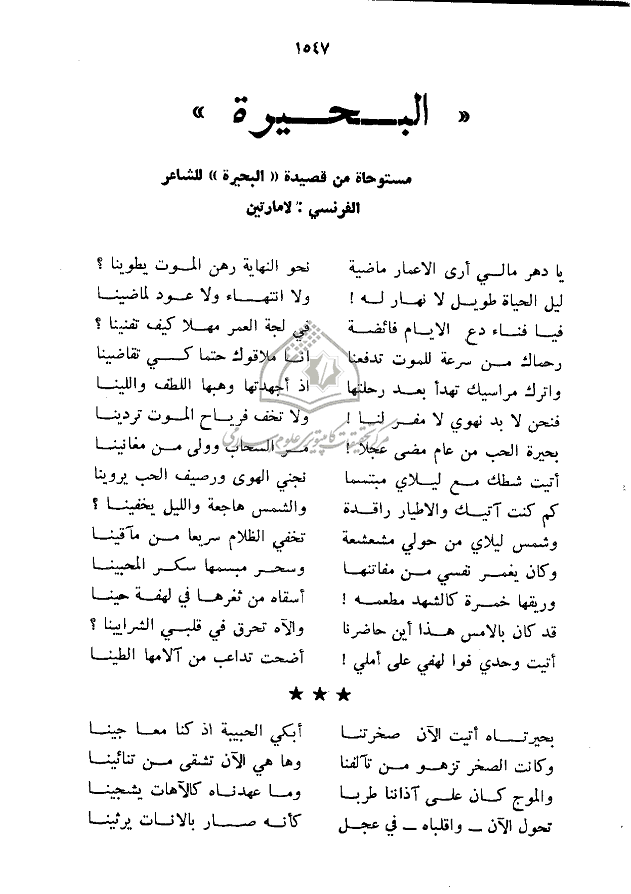 ١٥٤٧
« البـحـيـرة »
مستوحاة من قصيدة « البحيرة » للشاعر
الفرنسي : لامارتين
يا دهر مالي أرى الاعمار ماضية نحو النهاية رهن الموت يطوينا ؟
ليل الحياة طويل لا نهار له ! ولا انتهاء ولا عود لماضينا
فيا فناء دع الايام فائضة في لجة العمر مهلا كيف تفنينا ؟
رحماك من سرعة للموت تدفعنا انا ملاقوك حتما كي تقاضينا
واترك مراسيك تهدأ بعد رحلتها اذ أجهدتها وهبها اللطف واللينا
فنحن لا بد نهوي لا مفر لنا ! ولا تخف فرياح الموت تردينا
بحيرة الحب من عام مضى عجلا ! مر السحاب وولى من مغانينا
أتيت شطك مع ليلاي مبتسما نجني الهوى ورصيف الحب يروينا
كم كنت آتيك والاطيار راقدة والشمس هاجعة والليل يخفينا ؟
وشمس ليلاي من حولي مشعشعة تخفي الظلام سريعا من مآقينا
وكان يغمر نفسي من مفاتنها وسحر مبسمها سكر المحبينا
وريقها خمرة كالشهد مطعمه ! أسقاه من ثغرها في لهفة حينا
قد كان بالامس هذا أين حاضرنا والآه تحرق في قلبي الشرايينا ؟
أتيت وحدي فوا لهفي على أملي ! أضحت تداعب من آلامها الطينا
★ ★ ★
بحيرتاه أتيت الآن صخرتنا أبكي الحبيبة اذ كنا معا جينا
وكانت الصخر تزهو من تآلفنا وها هي الآن تشقى من تنائينا
والموج كان على آذاننا طربا وما عهدناه كالآهات يشجينا
تحول الآن ـ واقلباه ـ في عجل كأنه صار بالانات يرثينا